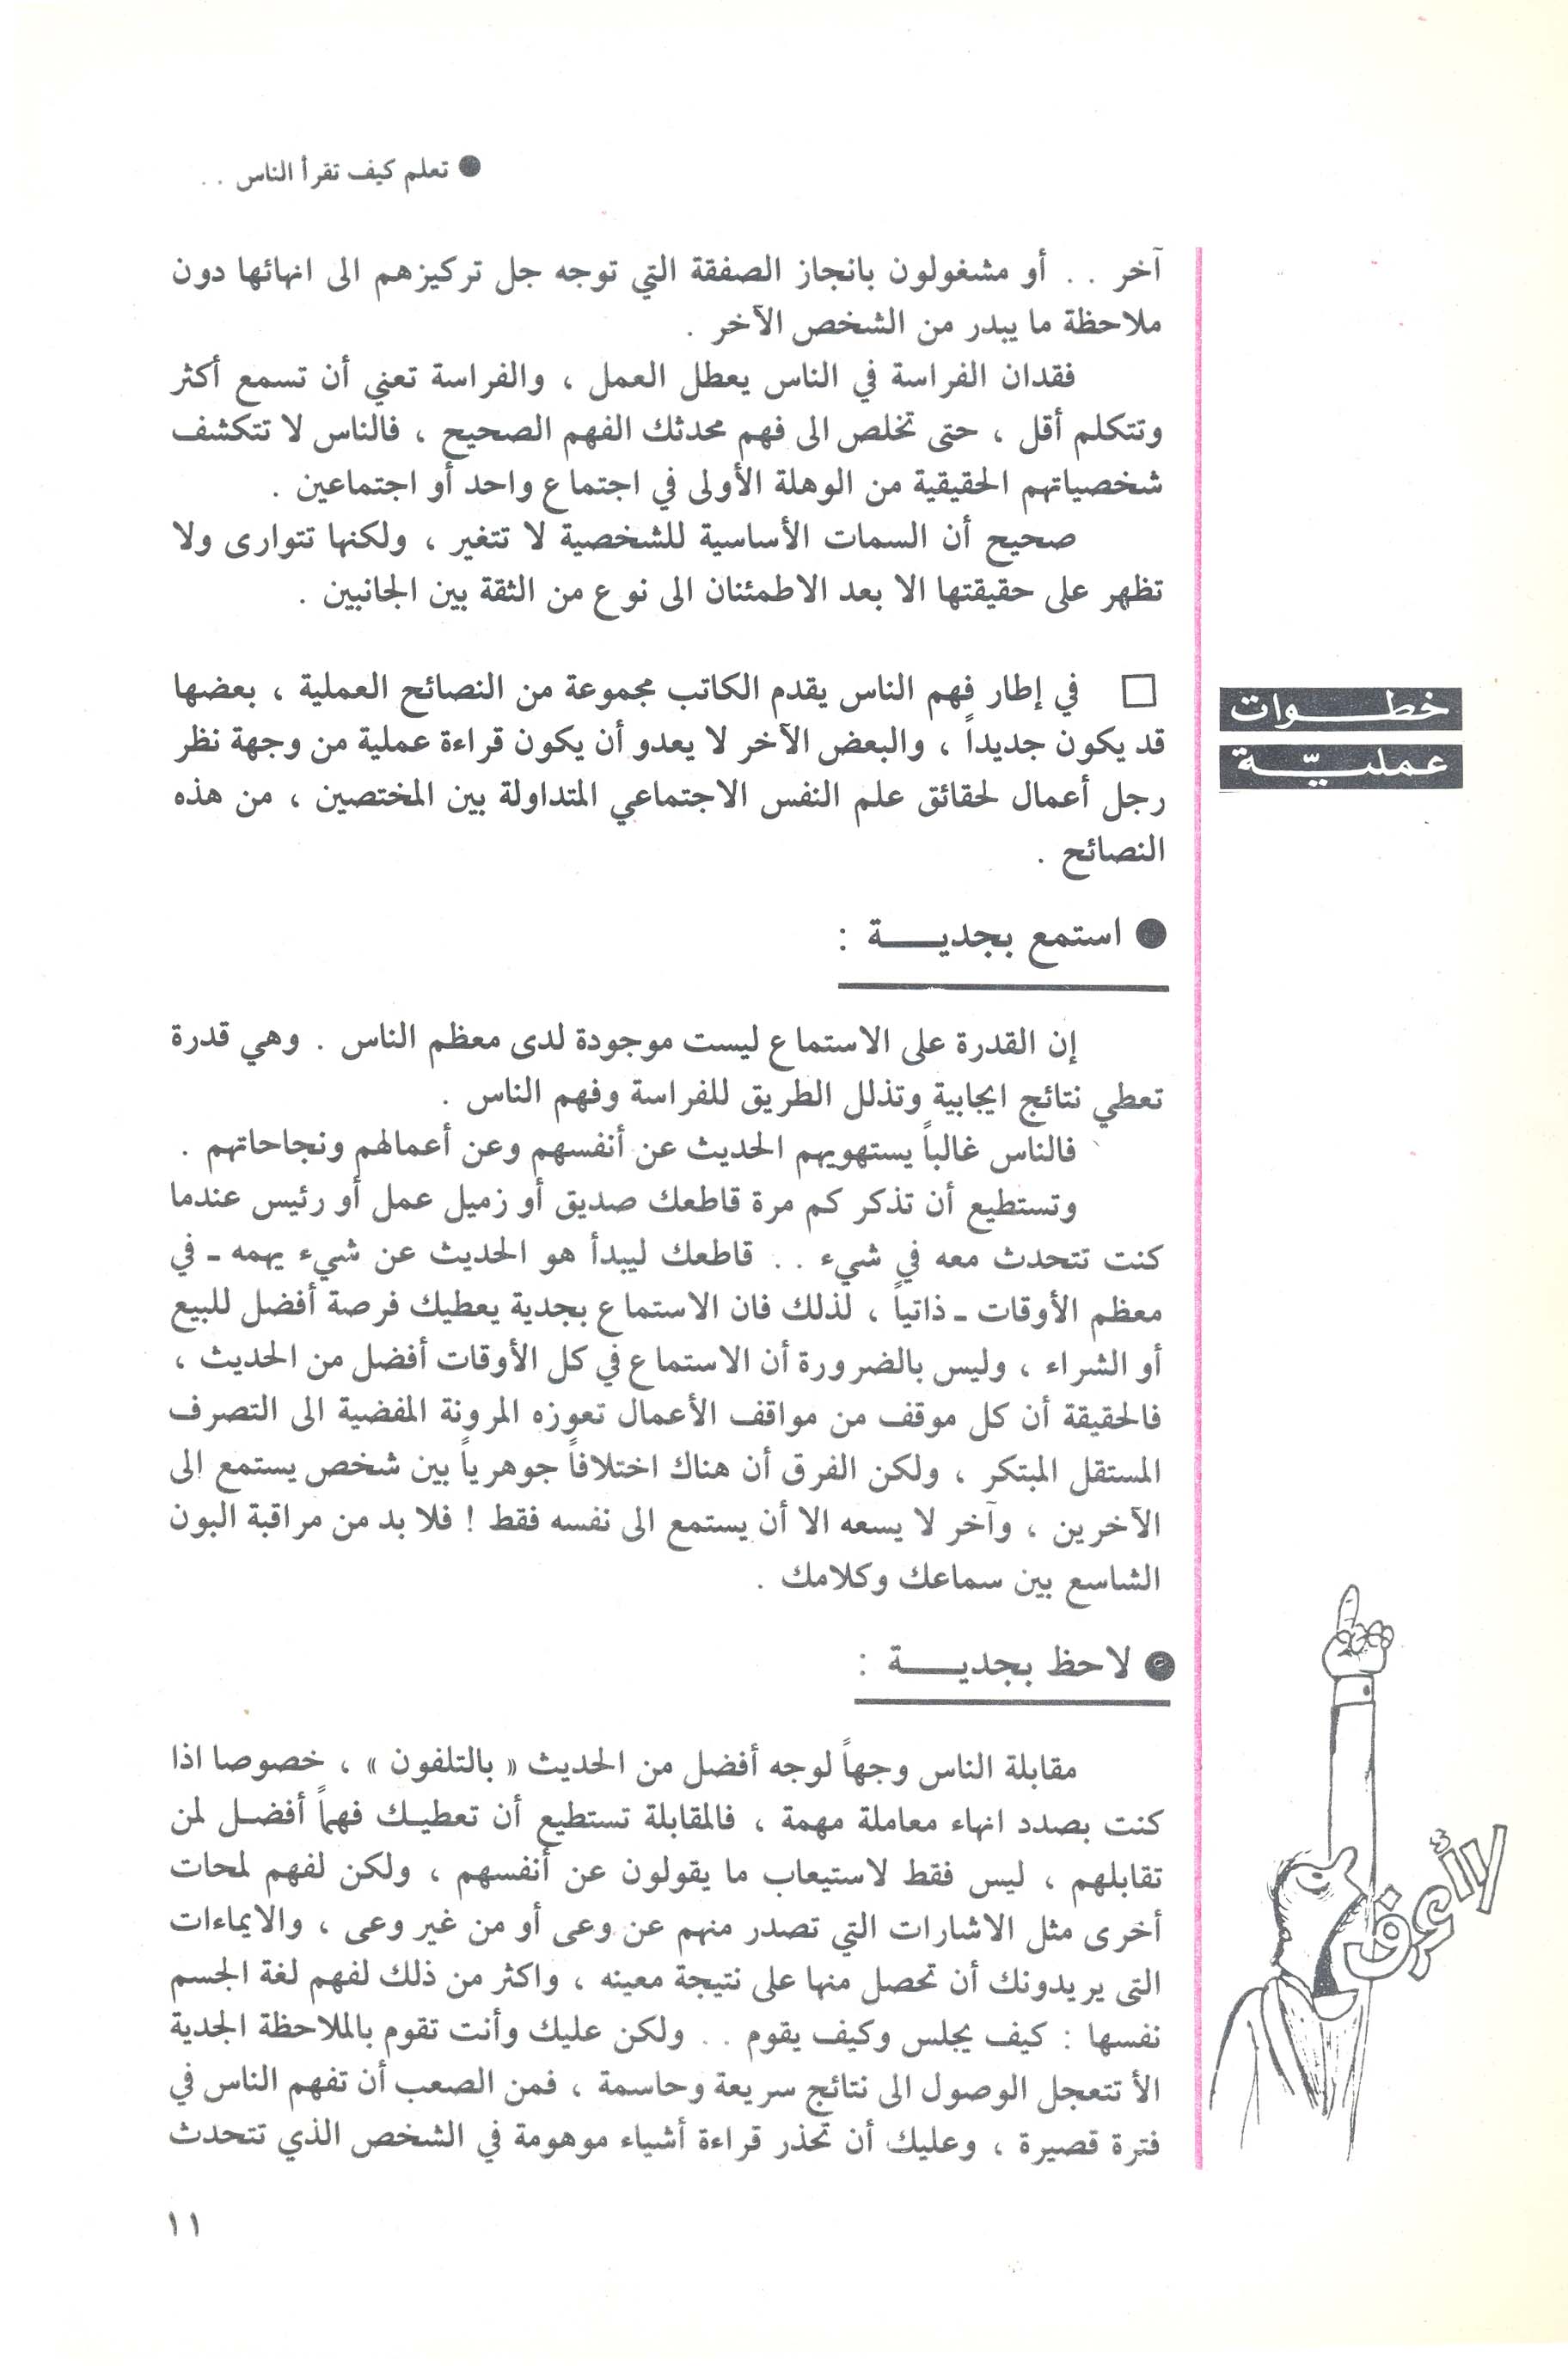 ● تعلم كيف تقرأ الناس . .
آخر . . أو مشغولون بانجاز الصفقة التي توجه جل تركيزهم الى انهائها دون
ملاحظة ما يبدر من الشخص الآخر .
فقدان الفراسة في الناس يعطل العمل ، والفراسة تعني أن تسمع أكثر
وتتكلم أقل ، حتى تخلص الى فهم محدثك الفهم الصحيح ، فالناس لا تتكشف
شخصياتهم الحقيقية من الوهلة الأولى في اجتماع واحد أو اجتماعين .
صحيح أن السمات الأساسية للشخصية لا تتغير ، ولكنها تتوارى ولا
تظهر على حقيقتها الا بعد الاطمئنان الى نوع من الثقة بين الجانبين .
خطوات
عمليّة
□ في إطار فهم الناس يقدم الكاتب مجموعة من النصائح العملية ، بعضها
قد يكون جديداً ، والبعض الآخر لا يعدو أن يكون قراءة عملية من وجهة نظر
رجل أعمال لحقائق علم النفس الاجتماعي المتداولة بين المختصين ، من هذه
النصائح .
● استمع بجدية :
إن القدرة على الاستماع ليست موجودة لدى معظم الناس . وهي قدرة
تعطي نتائج ايجابية وتذلل الطريق للفراسة وفهم الناس .
فالناس غالباً يستهويهم الحديث عن أنفسهم وعن أعمالهم ونجاحاتهم .
وتستطيع أن تذكر كم مرة قاطعك صديق أو زميل عمل أو رئيس عندما
كنت تتحدث معه في شيء . . قاطعك ليبدأ هو الحديث عن شيء يهمه ـ في
معظم الأوقات ـ ذاتياً ، لذلك فان الاستماع بجدية يعطيك فرصة أفضل للبيع
أو الشراء ، وليس بالضرورة أن الاستماع في كل الأوقات أفضل من الحديث ،
فالحقيقة أن كل موقف من مواقف الأعمال تعوزه المرونة المفضية الى التصرف
المستقل المبتكر ، ولكن الفرق أن هناك اختلافاً جوهرياً بين شخص يستمع إلى
الآخرين ، وآخر لا يسعه الا أن يستمع الى نفسه فقط ! فلا بد من مراقبة البون
الشاسع بين سماعك وكلامك .
● لاحظ بجدية :
مقابلة الناس وجهاً لوجه أفضل من الحديث « بالتلفون » ، خصوصا اذا
كنت بصدد انهاء معاملة مهمة ، فالمقابلة تستطيع أن تعطيك فهماً أفضل لمن
تقابلهم ، ليس فقط لاستيعاب ما يقولون عن أنفسهم ، ولكن لفهم لمحات
أخرى مثل الاشارات التي تصدر منهم عن وعى أو من غير وعى ، والايماءات
التى يريدونك أن تحصل منها على نتيجة معينه ، واكثر من ذلك لفهم لغة الجسم
نفسها : كيف يجلس وكيف يقوم . . ولكن عليك وأنت تقوم بالملاحظة الجدية
الأ تتعجل الوصول الى نتائج سريعة وحاسمة ، فمن الصعب أن تفهم الناس في
فترة قصيرة ، وعليك أن تحذر قراءة أشياء موهومة في الشخص الذي تتحدث
لا أعرف
١١